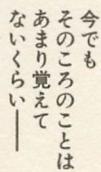 今でも
そのころのことは
あまり覚えて
ないくらい――